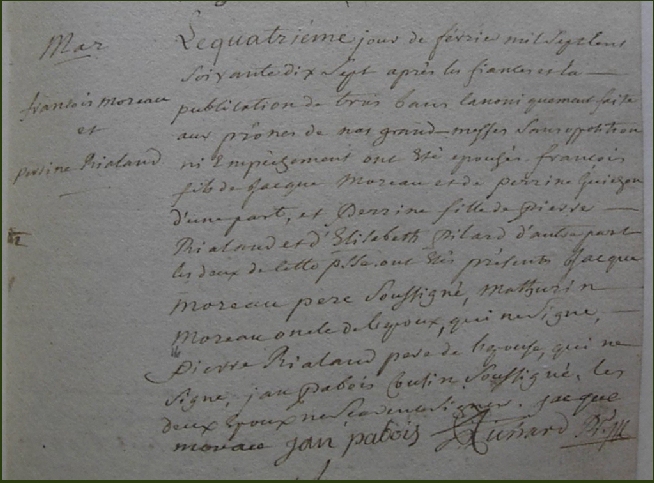 Mar
francois moreau
et
perrine Rialand
Le quatriéme jour de févrie mil sept cent
soixante dix sept après les fiancés et la
publication de trois bans canoniquement faite
aux prônes de nos grand-messes sans opposition
ni Empêchement ont été epousés francois
fils de Jacque Moreau et de perrine
d'une part, et perrine fille de pierre
Rialand et d'Elisabeth pilard d'autre part
les deux de cette psse. ont été présents Jacque
moreau pere soussigné, Mathurin
Moreau oncle de l'epoux, qui ne signe,
pierre Rialand pere de l'epouse, qui ne
signe, jan pabois Cousin soussigné. les
deux Epoux ne signer. jacque
moraue jan pabois